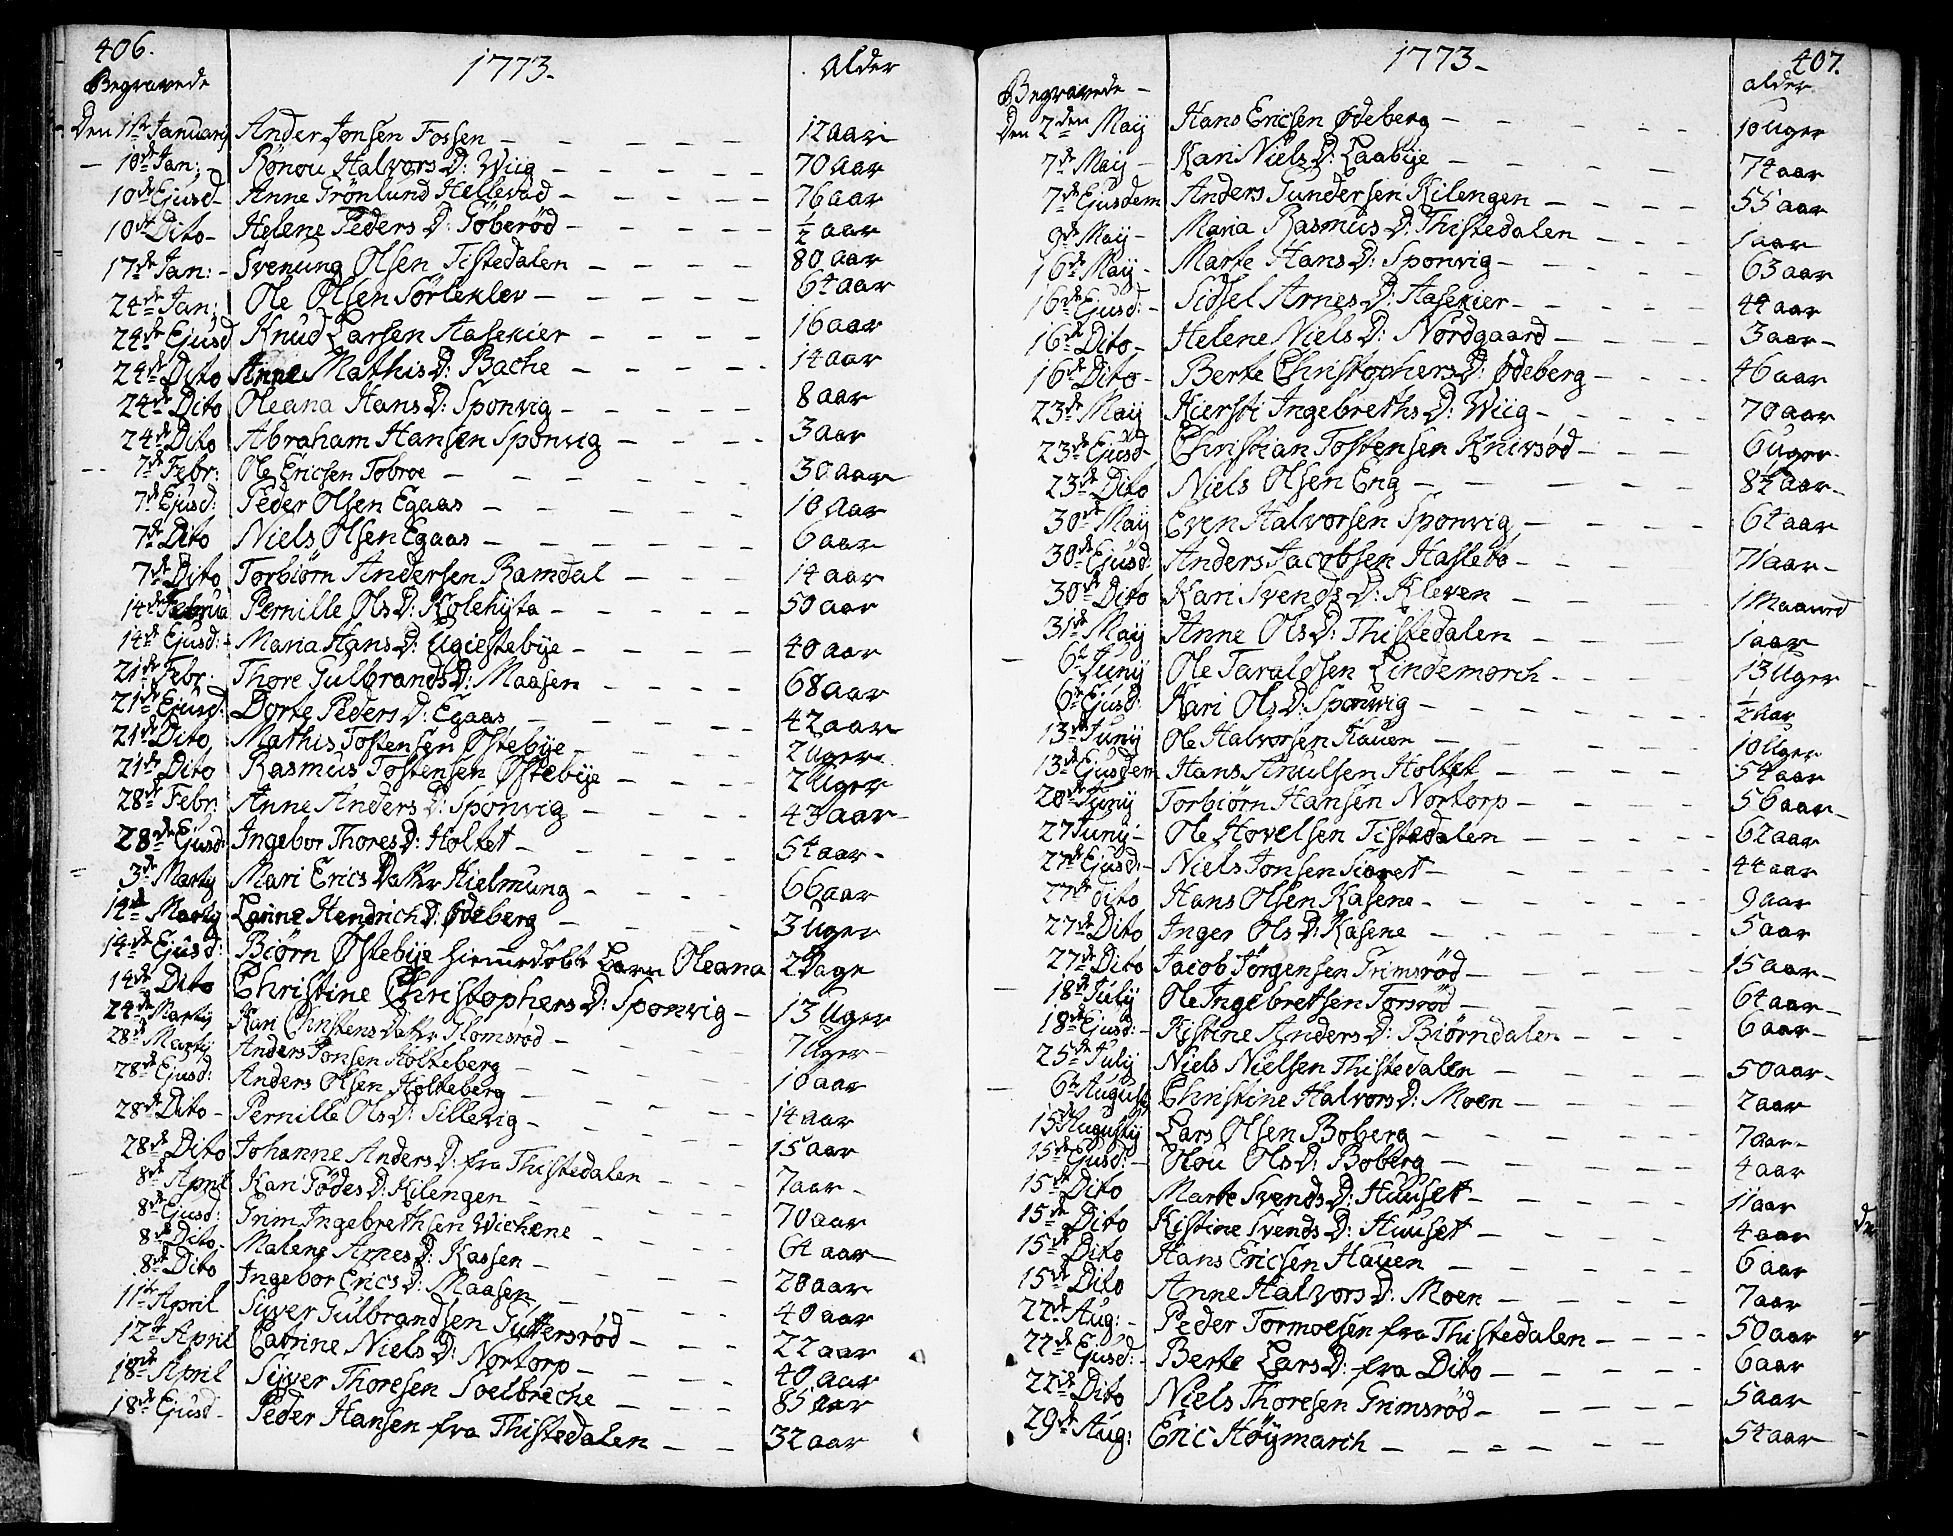 406.
Begravede 1773. Alder
Den 1te Januarij Ander Jonsen Fossen - 12 aar
10de Jan: Rönou Halvors D: Wiig - 70 aar
10de Ejusd Anne Grönlund Hellevad - 76 aar
10de Dito Helene Peders D: Göberød - ½ aar
17de Jan: Svenung Olsen Tistedalen - 80 aar
24de Jan: Ole Olsen Sörleklev - 64 aar
24de Ejusd Knud Larsen Aasekier - 16 aar
24de Dito Anne Mathis D: Bache - 14 aar
24de Dito Oleana Hans D: Sponvig - 8 aar
24de Dito Abraham Hansen Sponvig - 3 aar
7de Febr: Ole Ericsen Tobroe - 30 aar
7de Ejusd: Peder Olsen Egaas - 10 aar
7de Dito Niels Olsen Egaas - 6 aar
7de Dito Torbiörn Andersen Ramdal - 14 aar
14de Februa Pernille Ols D: Kolehijta - 50 aar
14de Ejusd: Maria Hans D: Ugiestebije - 40 aar
21de Febr: Thore Gulbrands D: Maasen - 68 aar
21de Ejusd: Dorte Peders D: Egaas - 42 aar
21de Dito Mathis Tostensen Østebije - 2 Uger
21de Dito Rasmus Tostensen Østebije - 2 Uger
28de Febr: Anne Anders D: Sponvig - 43 aar
28de Ejusd: Ingebor Thores D: Holtet - 54 aar
3de Martij Mari Erics Datter Hielmung - 66 aar
14de Martij Lenne Hendrich D: Ødeberg - 3 Uger
14de Ejusd: Biörn Østebije hiemmedöbt Barn Oleana 2 Dage
14de Dito Christine Christophers D: Sponvig - 13 Uger
24de Martij Kari Christens Datter Thomsrød - 7 Uger
28de Martij Anders Jonsen Holteberg - 10 aar
28de Ejusd: Anders Olsen Holteberg - 14 aar
28de Dito Pernille Ols D: Sillevig - 15 aar
28de Dito Johanne Anders D: fra Thistedalen - 7 aar
8de April Kari Födes D: Kilengen - 70 aar
8de Ejusd: Grim Ingebrethsen Wichene - 64 aar
8de Dito Malene Arnes D: Kassen - 20 aar
8de Dito Ingebor Erics D: Maasen - 40 aar
11te April Sijver Gulbrandsen Guttersrød - 22 aar
12te April Catrine Niels D: Nortorp - 40 aar
18de April Sijver Thoresen Soelbreche - 85 aar
18de Ejusd Peder Hansen fra Thistedalen - 32 aar
407.
Begravede 1773 alder
Den 2den Maij Hans Ericsen Ødeberg - 10 Uger
7de Maij Kari Niels D: Laabije - 74 aar
7de Ejusdem Anders Gundersen Kilengen - 55 aar
9de Maij Maria Rasmus D: Thistedalen - 1 aar
16de Maij Marte Hans D: Sponvig - 63 aar
16de Ejusd: Sidsel Arnes D: Aasekier - 44 aar
16de Dito Helene Niels D: Nordgaard - 3 aar
16de Dito Berte Christophers D: Ødeberg - 46 aar
23de Maij Kiersti Ingebreths D: Wiig - 70 aar
23de Ejusd Christian Tostensen Knivsød - 6 Uger
23de Dito Niels Olsen Eng - 84 aar
30de Maij Even Halvorsen Sponvig - 64 aar
30de Ejusd: Anders Jacobsen Haslebo - 71 aar
30de Dito Kari Svends D: Kleven - 1 Maaned
31de Maij Anne Ols D: Thistedalen - 1 aar
6te Junij Ole Taraldsen Lindemorch - 13 Uger
6te Ejusd: Kari Ols D: Sponvig - ½ Aar
13de Junij Ole Halvorsen Hauen - 10 Uger
13de Ejusdem Hans Knulsen Holtet - 54 aar
20de Junij Torbiörn Hansen Nortorp - 56 aar
27 Junij Ole Hovelsen Tistedalen - 62 aar
27de Ejusd: Niels Jonsen Sioret - 44 aar
27de dito Hans Olsen Kasene - 9 aar
27de Dito Inger Ols D: Kasene - 5 aar
27de Dito Jacob Jörgensen Grimsrød - 15 aar
18de Julij Ole Ingebretsen Torsrød - 64 aar
18de Ejusd: Kistine Anders D: Biörndalen - 6 aar
25de Julij Niels Nielsen Thistedalen - 50 aar
6te August Christine Halvors D: Moen - 2 aar
15de Augustij Lars Olsen Boberg - 7 aar
15de Ejusd: Olou Ols D: Boberg - 4 aar
15de Dito Marte Svends D: Huuset - 11 aar
15de Dito Kistine Svends D: Huuset - 4 aar
15de Dito Hans Ericsen Hauen - 6 aar
15de Dito Anne Halvors D: Moen - 7 aar
22de Aug: Peder Tormoesen fra Thistedalen - 50 aar
22de Ejusd: Berte Lars D: fra Dito - 6 aar
22de Dito Niels Thoresen Grimsrød - 5 aar
29de Aug: Eric Höymarch - 54 aar